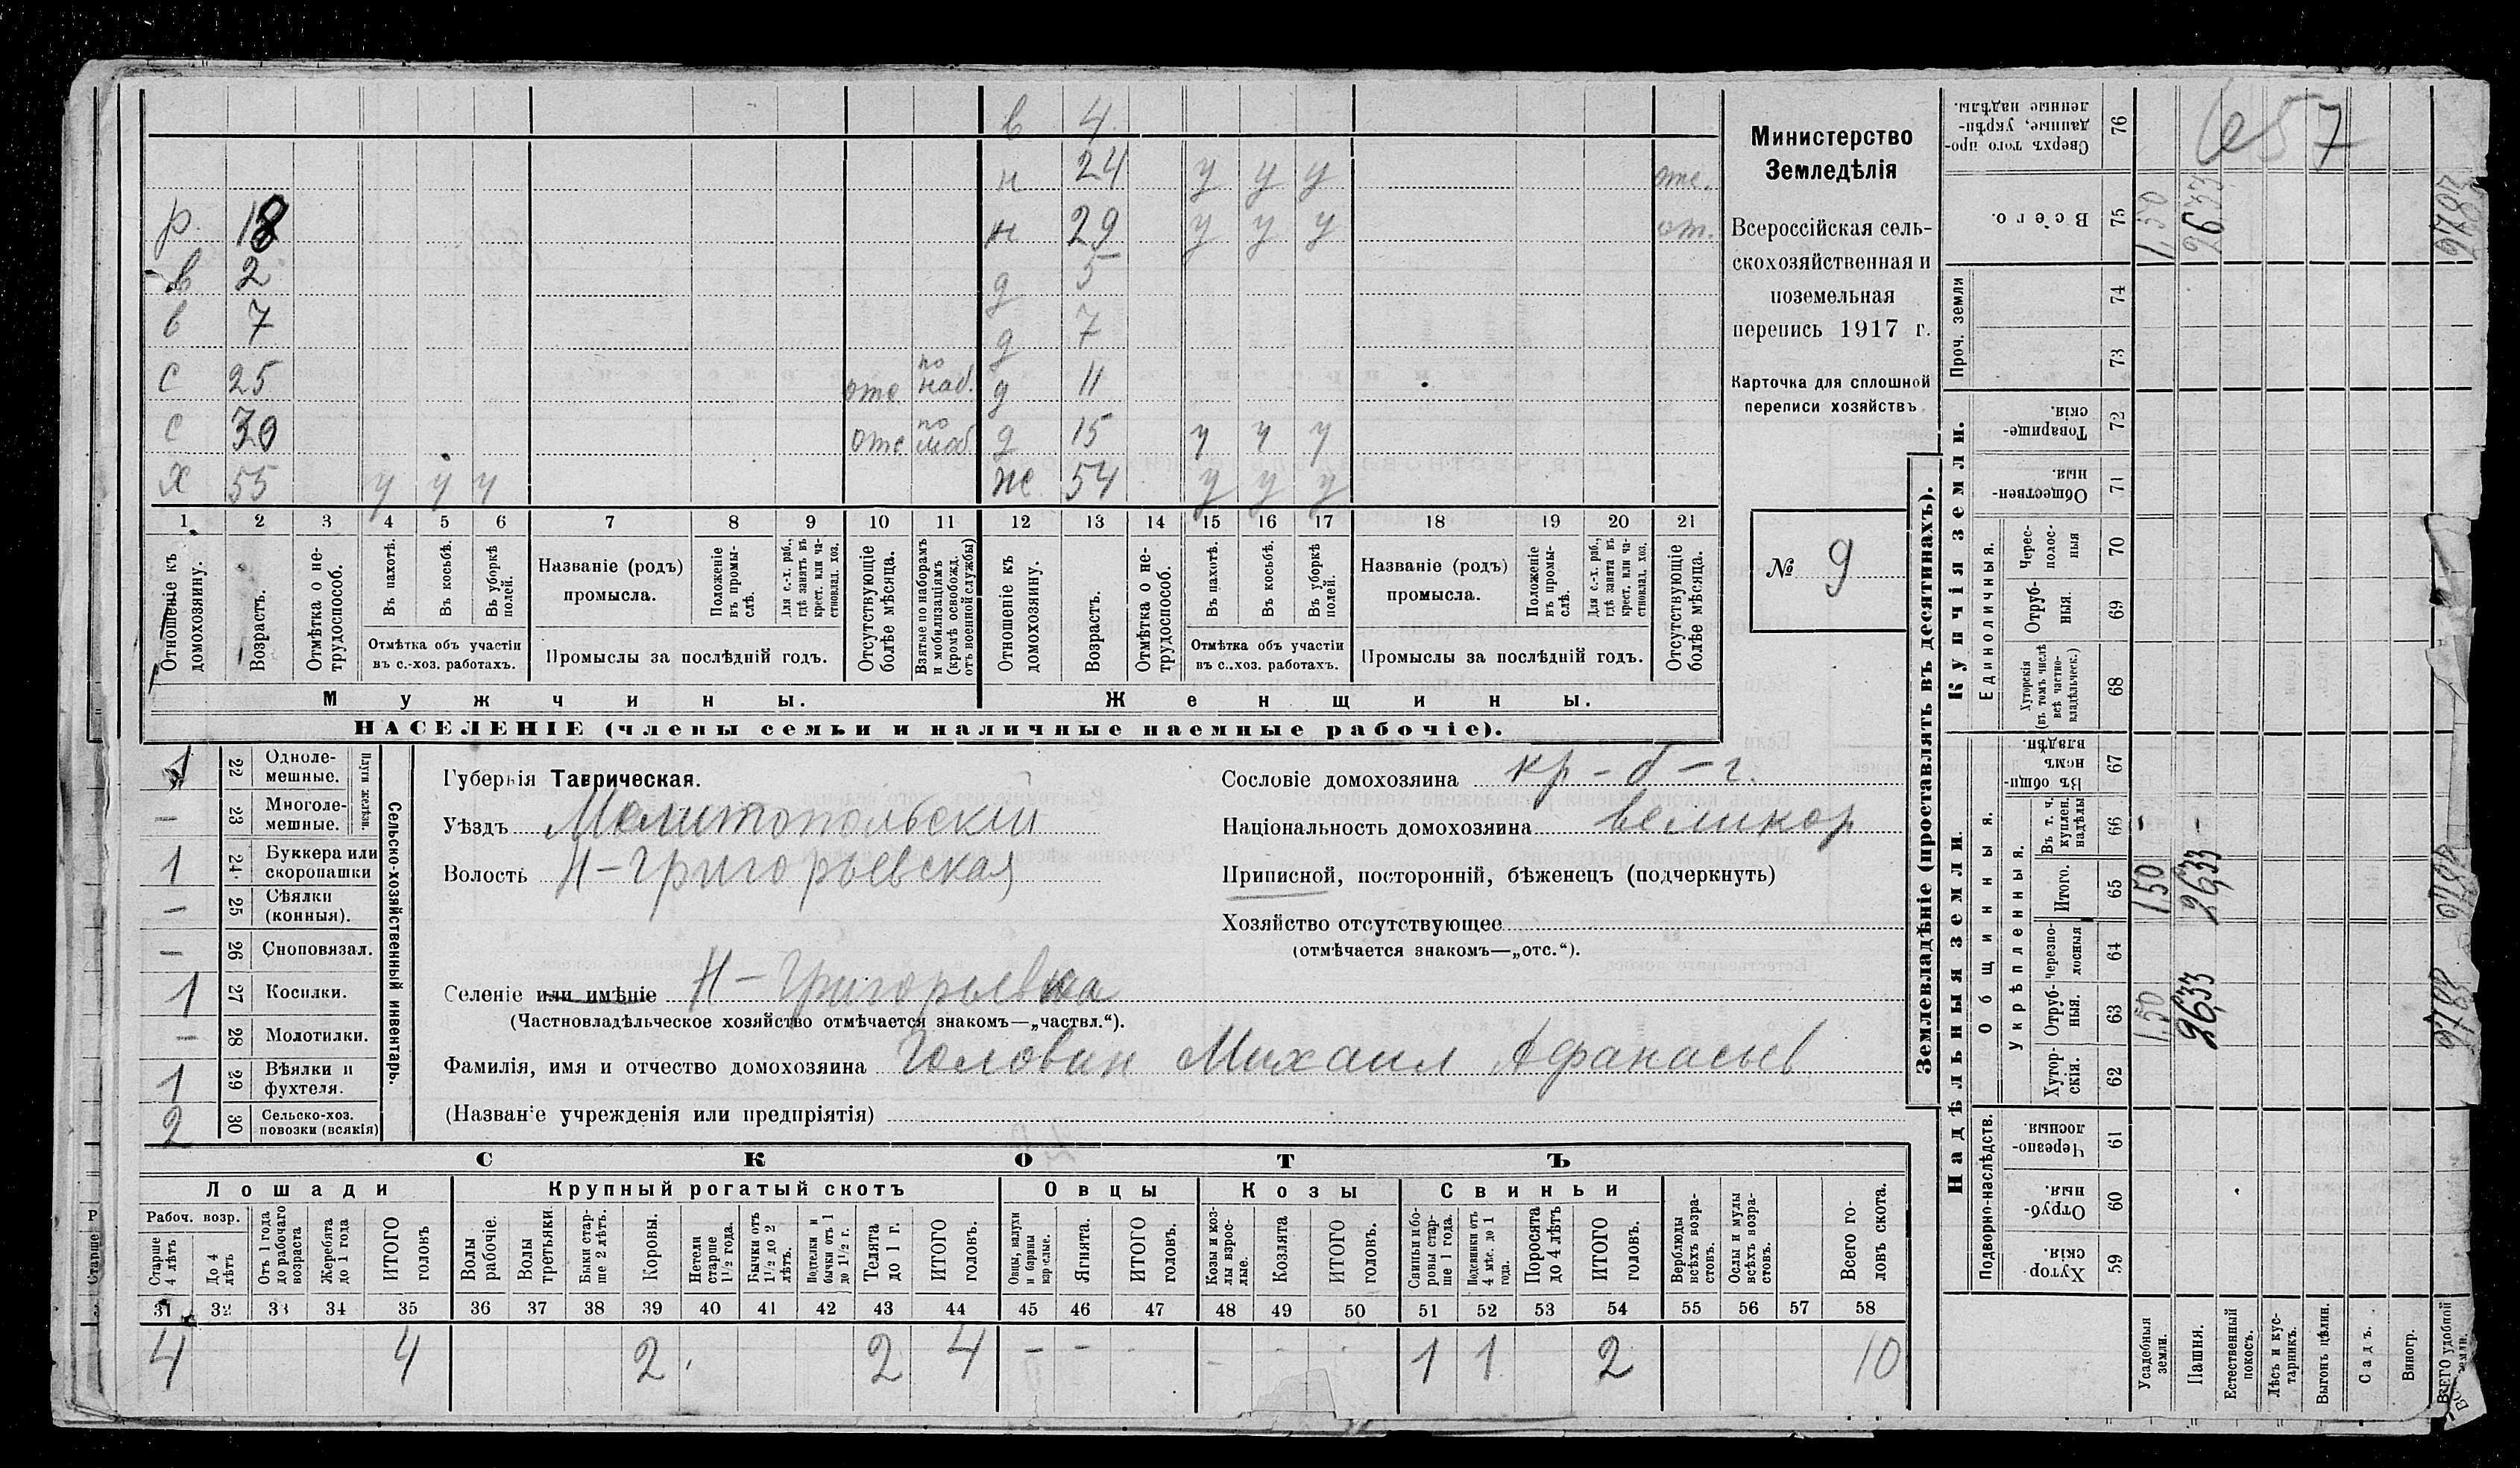 в 4
н 24 у у у отс.
р. 18 н 29 у у у от.
в 2 д 5
в 7 д 7
с 25 отс. по наб. д 11
с 30 отс по моб. д 15 у у у
х 55 у у у ж 54 у у у
1 2 3 4 5 6 7 8 9 10 11 12 13 14 15 16 17 18 19 20 21
Отношеніе къ домохозяину.
Возрастъ.
Отмѣтка о нетрудоспособ.
Въ пахотѣ.
Въ косьбѣ.
Въ уборкѣ полей.
Отмѣтка объ участіи
въ с.-хоз. работахъ.
Названіе (родъ)
промысла.
Положеніе въ промыслѣ.
Для с.-х. раб., гдѣ занятъ въ крест. или частновлад. хоз.
Промыслы за послѣдній годъ.
Отсутствующіе болѣе мѣсяца.
Взятые по наборамъ и мобилизаціямъ (кромѣ освобожд. отъ военной службы)
Отношеніе къ домохозяину.
Возрастъ.
Отмѣтка о нетрудоспособ.
Въ пахотѣ.
Въ косьбѣ.
Въ уборкѣ полей.
Отмѣтка объ участіи
въ с..хоз. работахъ.
Названіе (родъ)
промысла.
Положеніе въ промыслѣ.
Для с.-х. раб., гдѣ занята въ крест. или частновлад. хоз.
Промыслы за послѣдній годъ.
Отсутствующіе болѣе мѣсяца.
Мужчины. Женщины.
НАСЕЛЕНІЕ (члены семьи и наличные наемные рабочіе).
Министерство
Земледѣлія
Всероссійская сель-
скохозяйственная и
поземельная
перепись 1917 г.
Карточка для сплошной
переписи хозяйствъ
№ 9
Сельско-хозяйственный инвентарь.
Плуги желѣзн.
1 22 Однолемешные.
— 23 Многолемешные.
1 24 Буккера или скоропашки
— 25 Сѣялки (конныя).
— 26 Сноповязал.
1 27 Косилки.
— 28 Молотилки.
1 29 Вѣялки и фухтеля.
2 30 Сельско-хоз. повозки (всякія)
Губернія Таврическая.
Уѣздъ Мелитопольскій
Волость Н-Григорьевская
Селеніе или имѣніе Н-Григорьевка
(Частновладѣльческое хозяйство отмѣчается знакомъ—„частвл.“).
Фамилія, имя и отчество домохозяина Головин Михаил Афанасьев
(Названіе учрежденія или предпріятія)
Сословіе домохозяина кр-б-г.
Національность домохозяина великор
Приписной, посторонній, бѣженецъ (подчеркнуть)
Хозяйство отсутствующее
(отмѣчается знакомъ—„отс.“).
СКОТЪ
Лошади Крупный рогатый скотъ Овцы Козы Свиньи
Рабоч. возр.
Старше 4 лѣтъ
До 4 лѣтъ
Отъ 1 года до рабочаго возраста
Жеребята до 1 года
ИТОГО головъ
Волы рабочіе.
Волы третьяки.
Быки старше 2 лѣтъ.
Коровы.
Нетели старше 1½ года.
Бычки отъ 1½ до 2 лѣтъ.
Подтелки и бычки отъ 1 до 1½ г.
Телята до 1 г.
ИТОГО головъ.
Овцы, валухи и бараны взрослые.
Ягнята.
ИТОГО головъ.
Козы и козлы взрослые.
Козлята
ИТОГО головъ.
Свиньи и боровы старше 1 года.
Подсвинки отъ 4 мѣс. до 1 года.
Поросята до 4 лѣтъ
ИТОГО головъ.
Верблюды всѣхъ возрастовъ.
Ослы и мулы всѣхъ возрастовъ.
Всего головъ скота.
31 32 33 34 35 36 37 38 39 40 41 42 43 44 45 46 47 48 49 50 51 52 53 54 55 56 57 58
4 4 2 2 4 - - - 1 1 2 10
Землевладѣніе (проставлять въ десятинахъ).
Надѣльныя земли. Купчія земли. Проч. земли
Подворно-наслѣдств.
Общинныя.
Укрѣпленныя.
Единоличныя.
Хуторскія 59
Отрубныя. 60
Черезполосныя. 61
Хуторскія. 62
Отрубныя. 63
Черезполосныя 64
Итого. 65
Въ т. ч. куплен. надѣлы 66
Въ общинномъ владѣн. 67
Хуторскія (въ томъ числѣ всѣ частновладѣльческ.) 68
Отрубныя. 69
Чересполосныя 70
Общественныя. 71
Товарищескія. 72
73
74
Всего. 75
Сверхъ того проданные, укрѣпленные надѣлы. 76
Усадебныя земли. 1,50 1,50 - 1,50
Пашня. 26,33 26,33 - 26,33
Естественный покосъ.
Лѣсъ и кустарникъ.
Выгонъ цѣлин.
Садъ.
Виногр.
ВСЕГО удобной земли. 2783 2783 2783
657